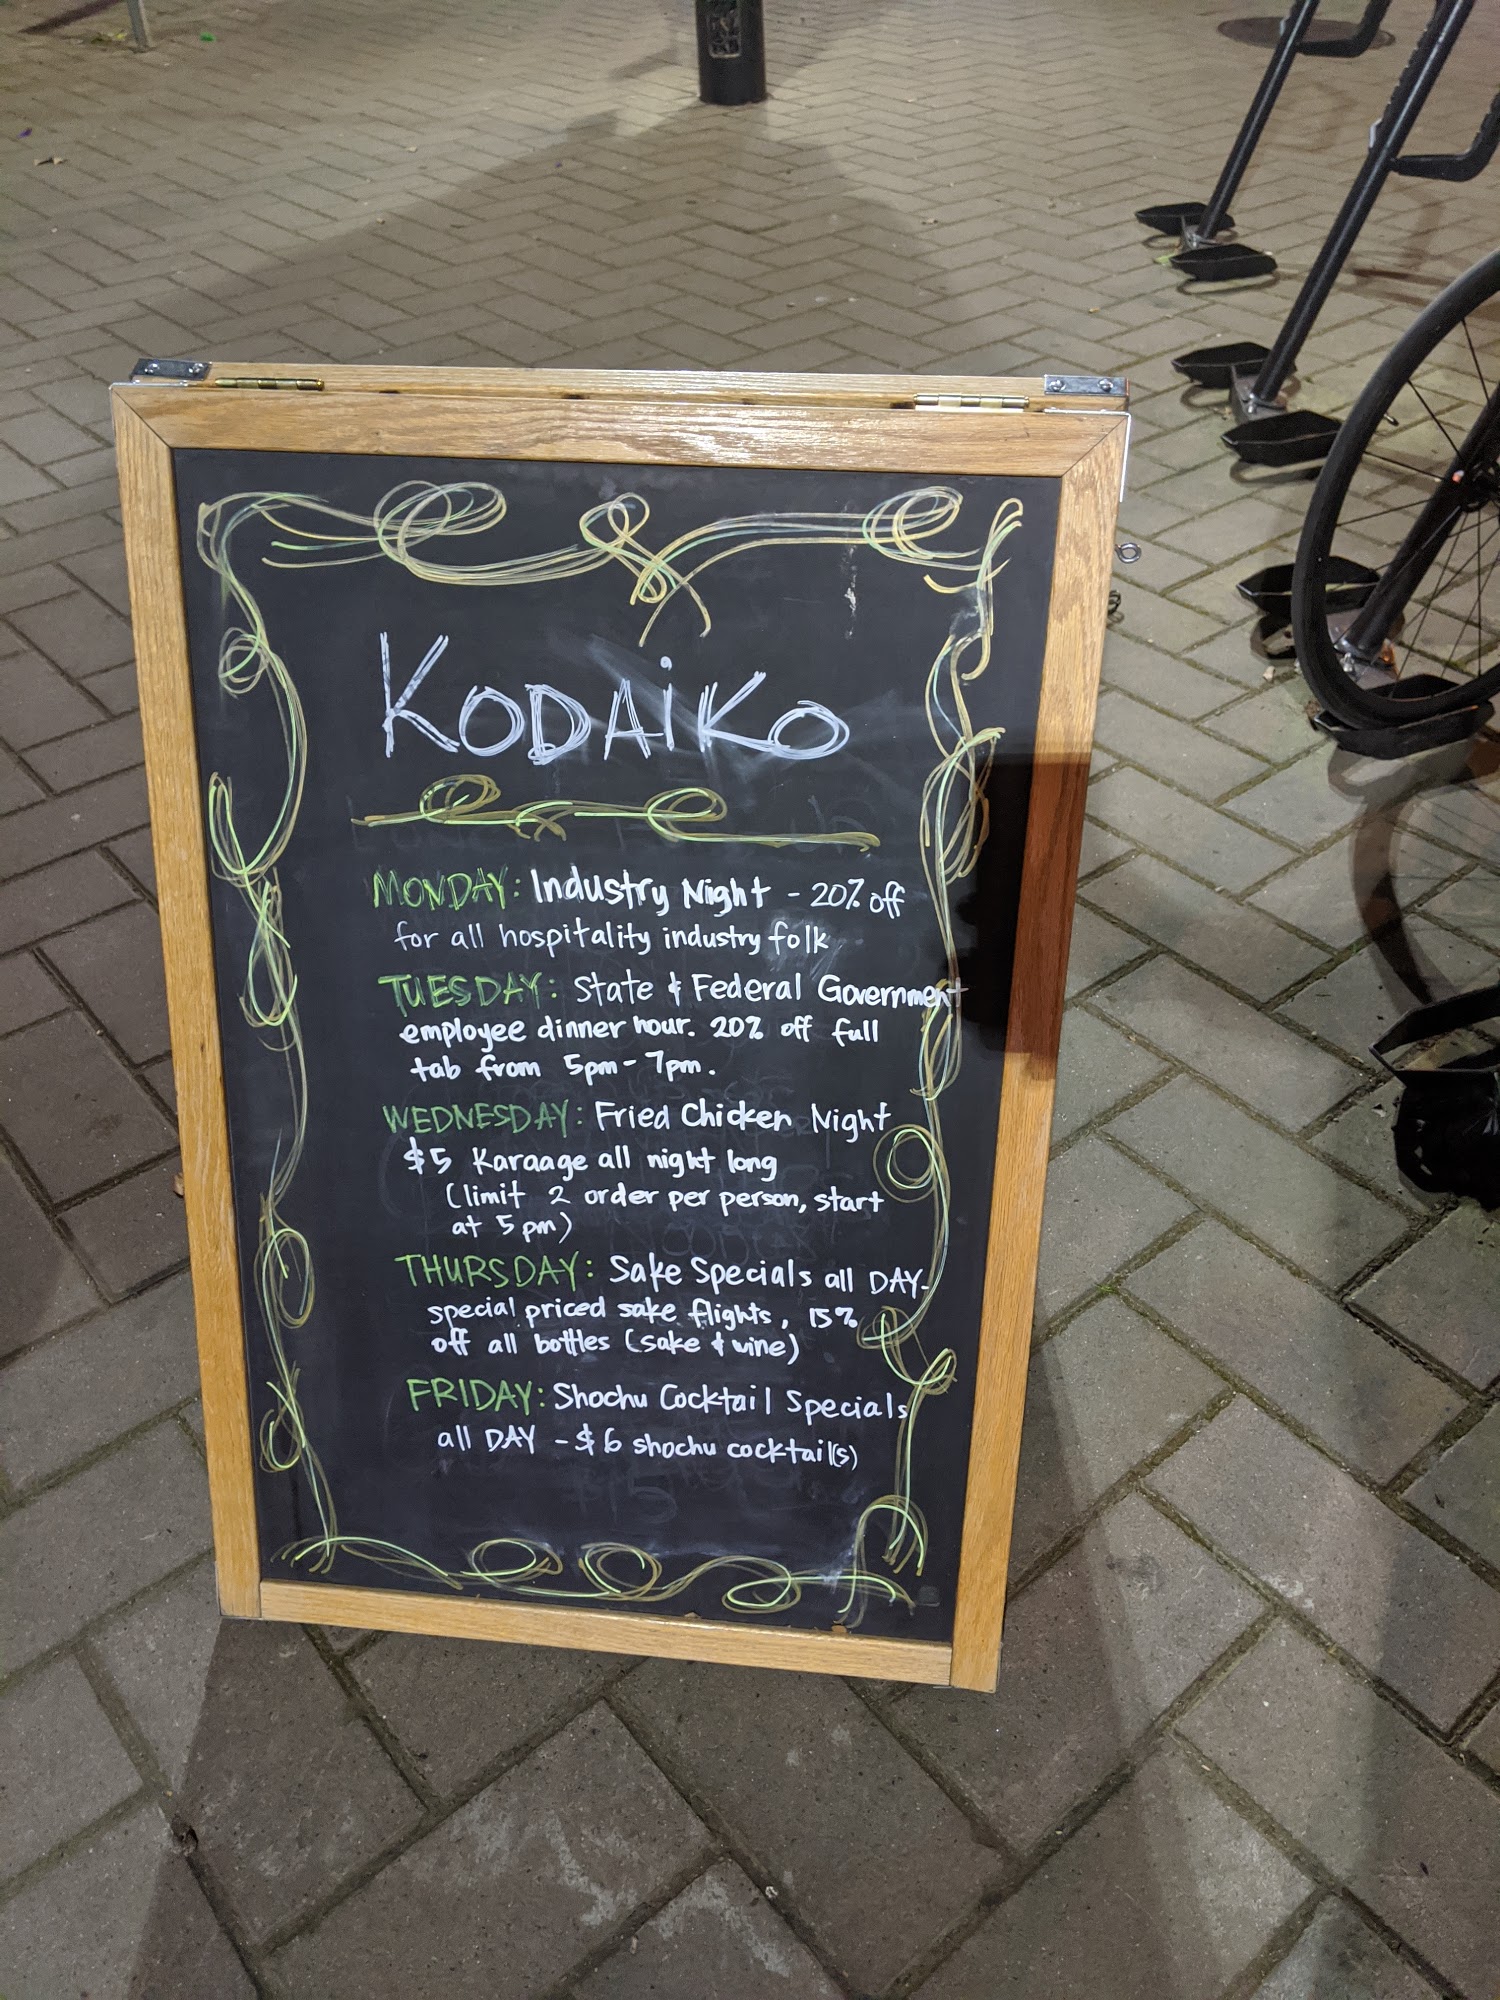 KODAiKO
MONDAY: Industry Night - 20% off
for all hospitality industry folk
TUESDAY: State & Federal Government
employee dinner hour. 20% off full
tab from 5pm-7pm.
WEDNESDAY: Fried Chicken Night
$5 Karaage all night long
(limit 2 order per person, start
at 5 pm)
THURSDAY: Sake Specials all DAY-
special priced sake flights, 15%
off all bottles (sake & wine)
FRIDAY: Shochu Cocktail Specials
all DAY - $6 shochu cocktail(s)